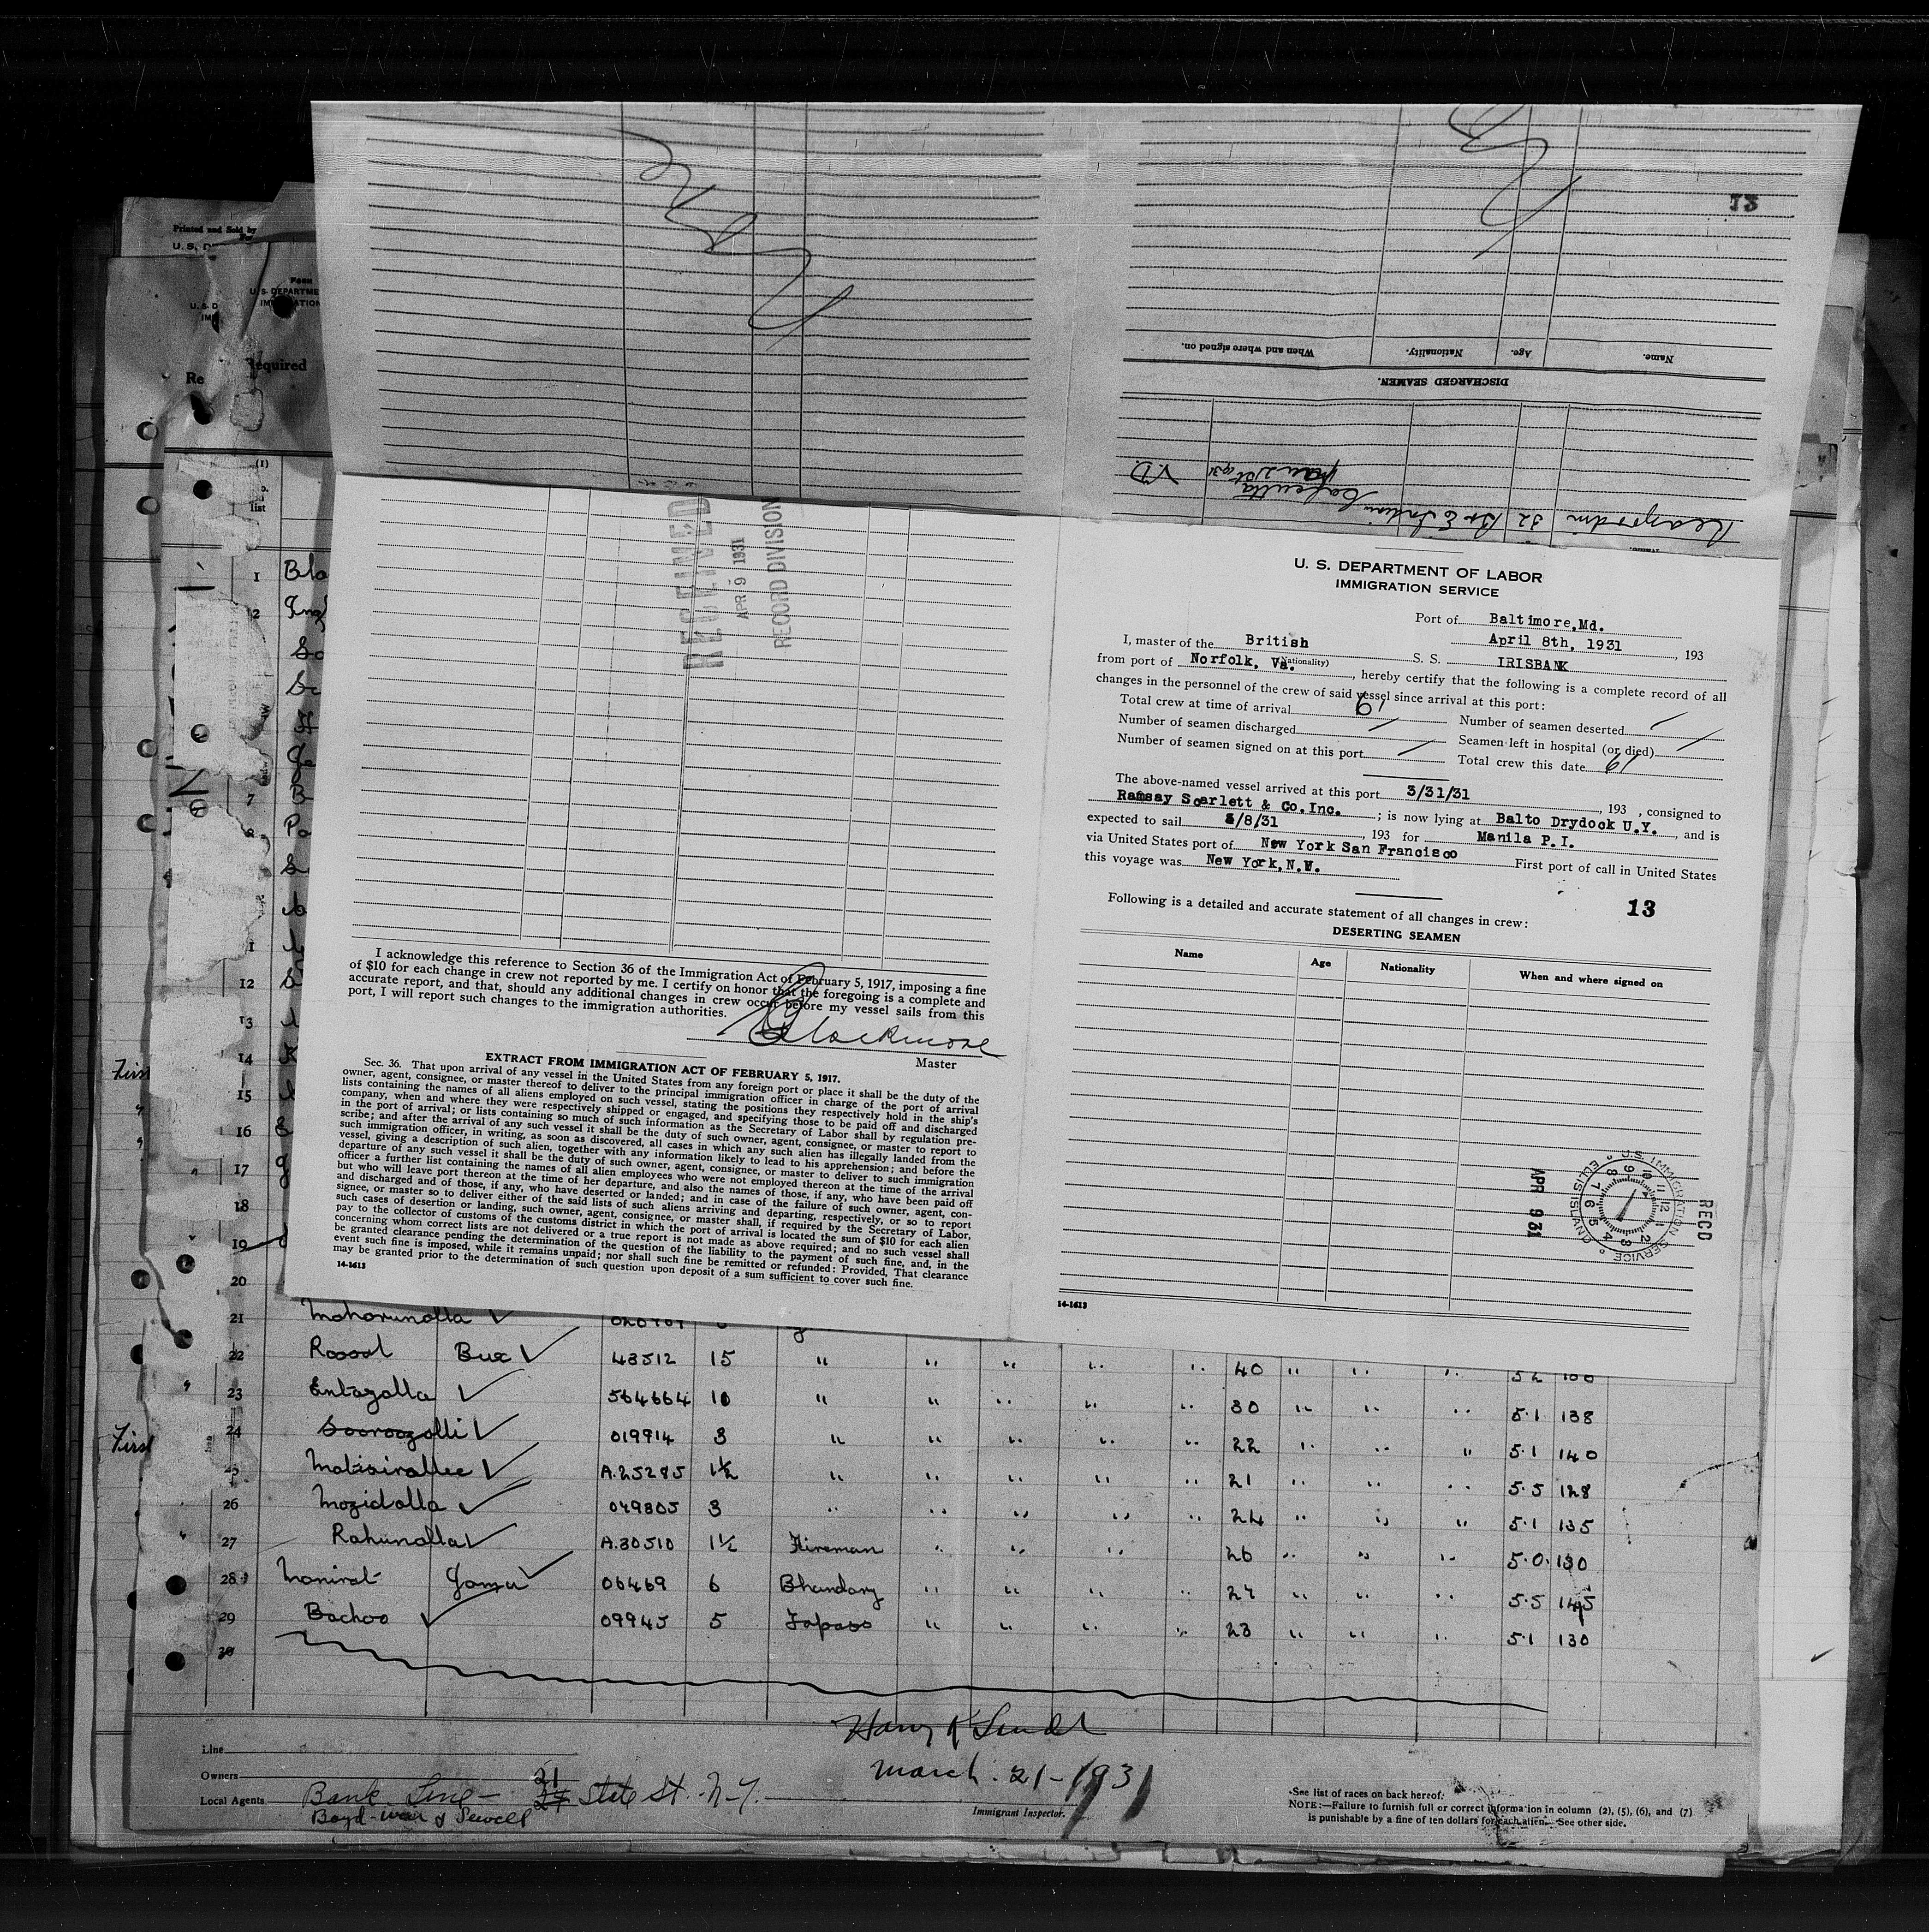 13
Name.
Age.
Nationality.
When and where signed on.
DISCHARGED SEAMEN.
32
Calcutta
V.D.
Printed and Sold by
U. S. D
U. S. D
U. S. DEPARTME
Required
Re
(1)
list
RECEIVED
APR 9 1931
RECORD DIVISION
I acknowledge this reference to Section 36 of the Immigration Act of February 5, 1917, imposing a fine
of $10 for each change in crew not reported by me. I certify on honor that the foregoing is a complete and
accurate report, and that, should any additional changes in crew occur before my vessel sails from this
port, I will report such changes to the immigration authorities.
Blackmore
Master
EXTRACT FROM IMMIGRATION ACT OF FEBRUARY 5, 1917.
Sec. 36. That upon arrival of any vessel in the United States from any foreign port or place it shall be the duty of the
owner, agent, consignee, or master thereof to deliver to the principal immigration officer in charge of the port of arrival
lists containing the names of all aliens employed on such vessel, stating the positions they respectively hold in the ship's
company, when and where they were respectively shipped or engaged, and specifying those to be paid off and discharged
in the port of arrival; or lists containing so much of such information as the Secretary of Labor shall by regulation pre-
scribe; and after the arrival of any such vessel it shall be the duty of such owner, agent, consignee, or master to report to
such immigration officer, in writing, as soon as discovered, all cases in which any such alien has illegally landed from the
vessel, giving a description of such alien, together with any information likely to lead to his apprehension; and before the
departure of any such vessel it shall be the duty of such owner, agent, consignee, or master to deliver to such immigration
officer a further list containing the names of all alien employees who were not employed thereon at the time of the arrival
but who will leave port thereon at the time of her departure, and also the names of those, if any, who have been paid off
and discharged and of those, if any, who have deserted or landed; and in case of the failure of such owner, agent, con-
signee, or master so to deliver either of the said lists of such aliens arriving and departing, respectively, or so to report
such cases of desertion or landing, such owner, agent, consignee, or master shall, if required by the Secretary of Labor,
pay to the collector of customs of the customs district in which the port of arrival is located the sum of $10 for each alien
concerning whom correct lists are not delivered or a true report is not made as above required; and no such vessel shall
be granted clearance pending the determination of the question of the liability to the payment of such fine, and, in the
event such fine is imposed, while it remains unpaid; nor shall such fine be remitted or refunded: Provided, That clearance
may be granted prior to the determination of such question upon deposit of a sum sufficient to cover such fine.
14-1613
U. S. DEPARTMENT OF LABOR
IMMIGRATION SERVICE
Port of Baltimore,Md.
April 8th, 1931, 193
I, master of the British S. S. IRISBANK
(Nationality)
from port of Norfolk, Va., hereby certify that the following is a complete record of all
changes in the personnel of the crew of said vessel since arrival at this port:
Total crew at time of arrival 91 Number of seamen deserted /
Number of seamen discharged / Seamen left in hospital (or died) /
Number of seamen signed on at this port / Total crew this date 91
The above-named vessel arrived at this port 3/31/31, 193 , consigned to
Ramsay Scarlett & Co.Inc. ; is now lying at Balto Drydock U.Y. , and is
expected to sail 4/8/31, 193 for Manila P.I.
via United States port of New York San Francisco First port of call in United States
this voyage was New York,N.Y.
13
Following is a detailed and accurate statement of all changes in crew:
DESERTING SEAMEN
Name Age Nationality When and where signed on
U.S. IMMIGRATION SERVICE
ELLIS ISLAND
RECD
APR 9 31
14-1613
1
2
7
12
13
14
15
16
17
18
19
20
21 Mohorunolla
22 Rosool Bux 43512 15 " " " " " 40 " " " 5 2
23 Entazolla 564664 10 " " " " " 30 " " " 5.1 138
24 Sooroozolli 019914 3 " " " " " 22 " " " 5.1 140
25 Motisirallee A.25285 1½ " " " " " 21 " " " 5.5 128
26 Mozidolla 049805 3 " " " " " 24 " " " 5.1 135
27 Rahunolla A.30510 1½ Fireman " " " 26 " " " 5.0 130
28 Monirat Goma 06469 6 Bhandary " " " " 27 " " " 5.5 145
29 Bachoo 09945 5 Topass " " " " 23 " " " 5.1 130
30
First
First
March. 21-1931
Immigrant Inspector.
Line
Owners
Local Agents Bank Line - 21 State St. N-Y.
Boyd-Weir & Sewell
See list of races on back hereof.
NOTE:—Failure to furnish full or correct information in column (2), (5), (6), and (7)
is punishable by a fine of ten dollars for each alien. See other side.